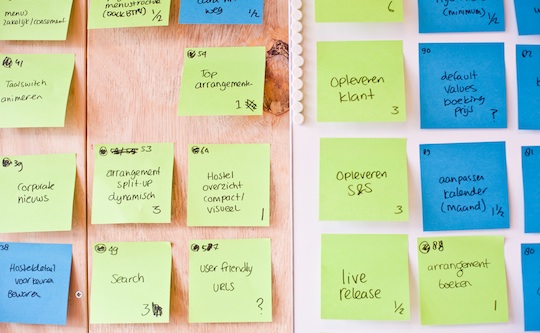 menu
zakelijk/consument
menustructuur
(back BTN)
1/2
weg
1/2
6
(minimum)
1/2
41
Taalswitch
animeren
59
Top
arrangement
1
Opleveren
klant
3
90
default
values
boeking
prijs
?
39
Corporate
nieuws
53
arrangement
split-up
dynamisch
3
60
Hostel
overzicht
compact/
visueel
1
Opleveren
S&S
3
89
aanpassen
kalender
(maand)
1 1/2
38
Hosteldetail
voorkeuren
bewaren
49
Search
3
57
user friendly
URLS
?
live
release
1/2
88
arrangement
boeken
1